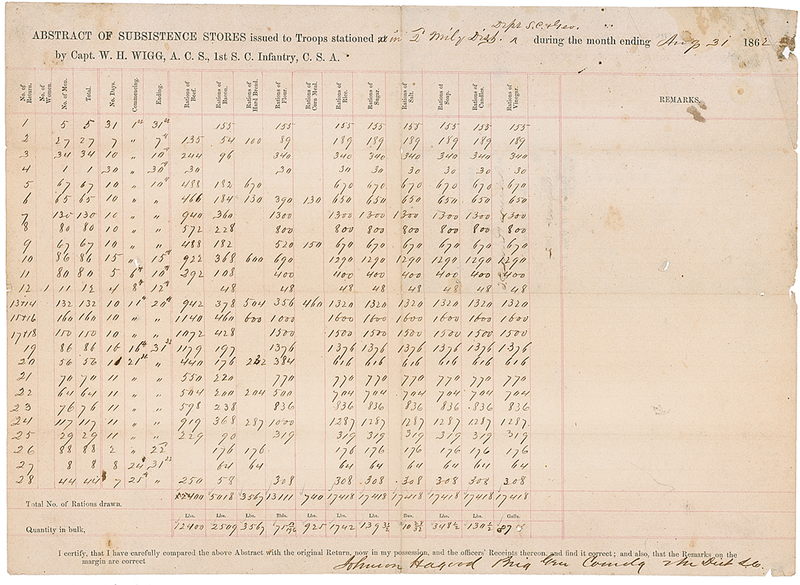 Dept S.C. & Geo.
ABSTRACT OF SUBSISTENCE STORES issued to Troops stationed at in 2 Mily Dist. ^ during the month ending Aug 31 1862
by Capt. W. H. WIGG, A. C. S., 1st S. C. Infantry, C. S. A.
No. of Return. No. of Women. No. of Men. Total. No. Days. Commencing. Ending. Rations of Beef. Rations of Bacon. Rations of Hard Bread. Rations of Flour. Rations of Corn Meal. Rations of Rice. Rations of Sugar. Rations of Salt. Rations of Soap. Rations of Candles. Rations of Vinegar. REMARKS.
1 5 5 31 1st 31st 155 155 155 155 155 155 155 155
2 27 27 7 " 7th 135 54 100 89 189 189 189 189 189 189
3 34 34 10 " 10th 244 96 340 340 340 340 340 340 340
4 1 1 30 " 30th 30 30 30 30 30 30 30 30
5 67 67 10 " 10th 488 182 670 670 670 670 670 670 670
6 65 65 10 " " 466 184 130 390 130 650 650 650 650 650 650
7 130 130 10 " " 940 360 1300 1300 1300 1300 1300 1300 1300
8 80 80 10 " " 572 228 800 800 800 800 800 800 800
9 67 67 10 " " 488 182 520 150 670 670 670 670 670 670
10 86 86 15 " 15th 922 368 600 690 1290 1290 1290 1290 1290 1290
11 80 80 5 6th 10th 292 108 400 400 400 400 400 400 400
12 1 11 12 4 8th 12th 48 48 48 48 48 48 48 48
13+14 132 132 10 11th 20th 942 378 504 356 460 1320 1320 1320 1320 1320 1320
15+16 160 160 10 " " 1140 460 600 1000 1600 1600 1600 1600 1600 1600
17+18 150 150 10 " " 1072 428 1500 1500 1500 1500 1500 1500 1500
19 86 86 16 16th 31st 1179 197 1376 1376 1376 1376 1376 1376 1376
20 56 56 11 21st " 440 176 232 384 616 616 616 616 616 616
21 70 70 11 " " 550 220 770 770 770 770 770 770 770
22 64 64 11 " " 504 200 204 500 704 704 704 704 704 704
23 76 76 11 " " 598 238 836 836 836 836 836 836 836
24 117 117 11 " " 919 368 287 1000 1287 1287 1287 1287 1287 1287
25 29 29 11 " " 229 90 319 319 319 319 319 319 319
26 88 88 2 " 22nd 176 176 176 176 176 176 176 176
27 8 8 8 24th 31st 64 64 64 64 64 64 64 64
28 44 44 7 21st " 250 58 308 308 308 308 308 308 308
Total No. of Rations drawn. 12400 5018 3567 13111 740 17418 17418 17418 17418 17418 17418
Lbs. Lbs. Lbs. Bbls. Lbs. Lbs. Lbs. Lbs. Lbs. Galls.
Quantity in bulk, 12400 2509 3567 925 1742
I certify, that I have carefully compared the above Abstract with the original Return, now in my possession, and the officers' Receipts thereon, and find it correct; and also, that the Remarks on the
margin are correct
Johnson Hagood Brig Gen Comdg 2d Mil Dist S.C.